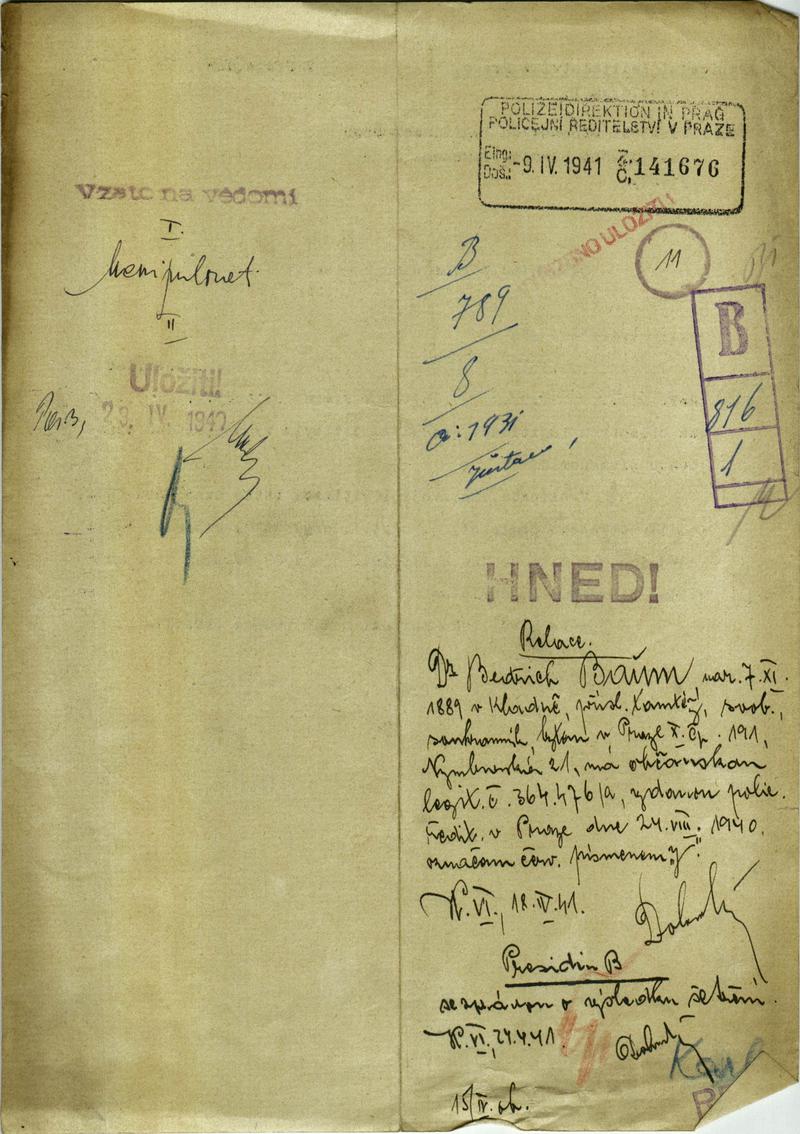 Vzato na vědomí
I.
II
Uložiti!
23. IV. 1942
POLIZEIDIREKTION IN PRAG
POLICEJNÍ ŘEDITELSTVÍ V PRAZE
Eing.:
Doš.: -9. IV. 1941 Z. Č. 141676
ULOŽITI!
11
B
789
8
a: 1931
B
816
1
HNED!
Relace.
Dr Bedřich Baum nar. 7. XI.
1889 v Kladně, přísl. svob.,
soukromník, bytem v Praze X. čp. 191,
21, má občanskou
legit. č. 364.476/a, vydanou polic.
ředit. v Praze dne 24. VIII. 1940.
označenou červ. písmenem „J".
N. VI., 18. IV. 41.
Presidiu B
se zprávou o výsledku šetření.
N. VI., 24.4.41.
15/IV.